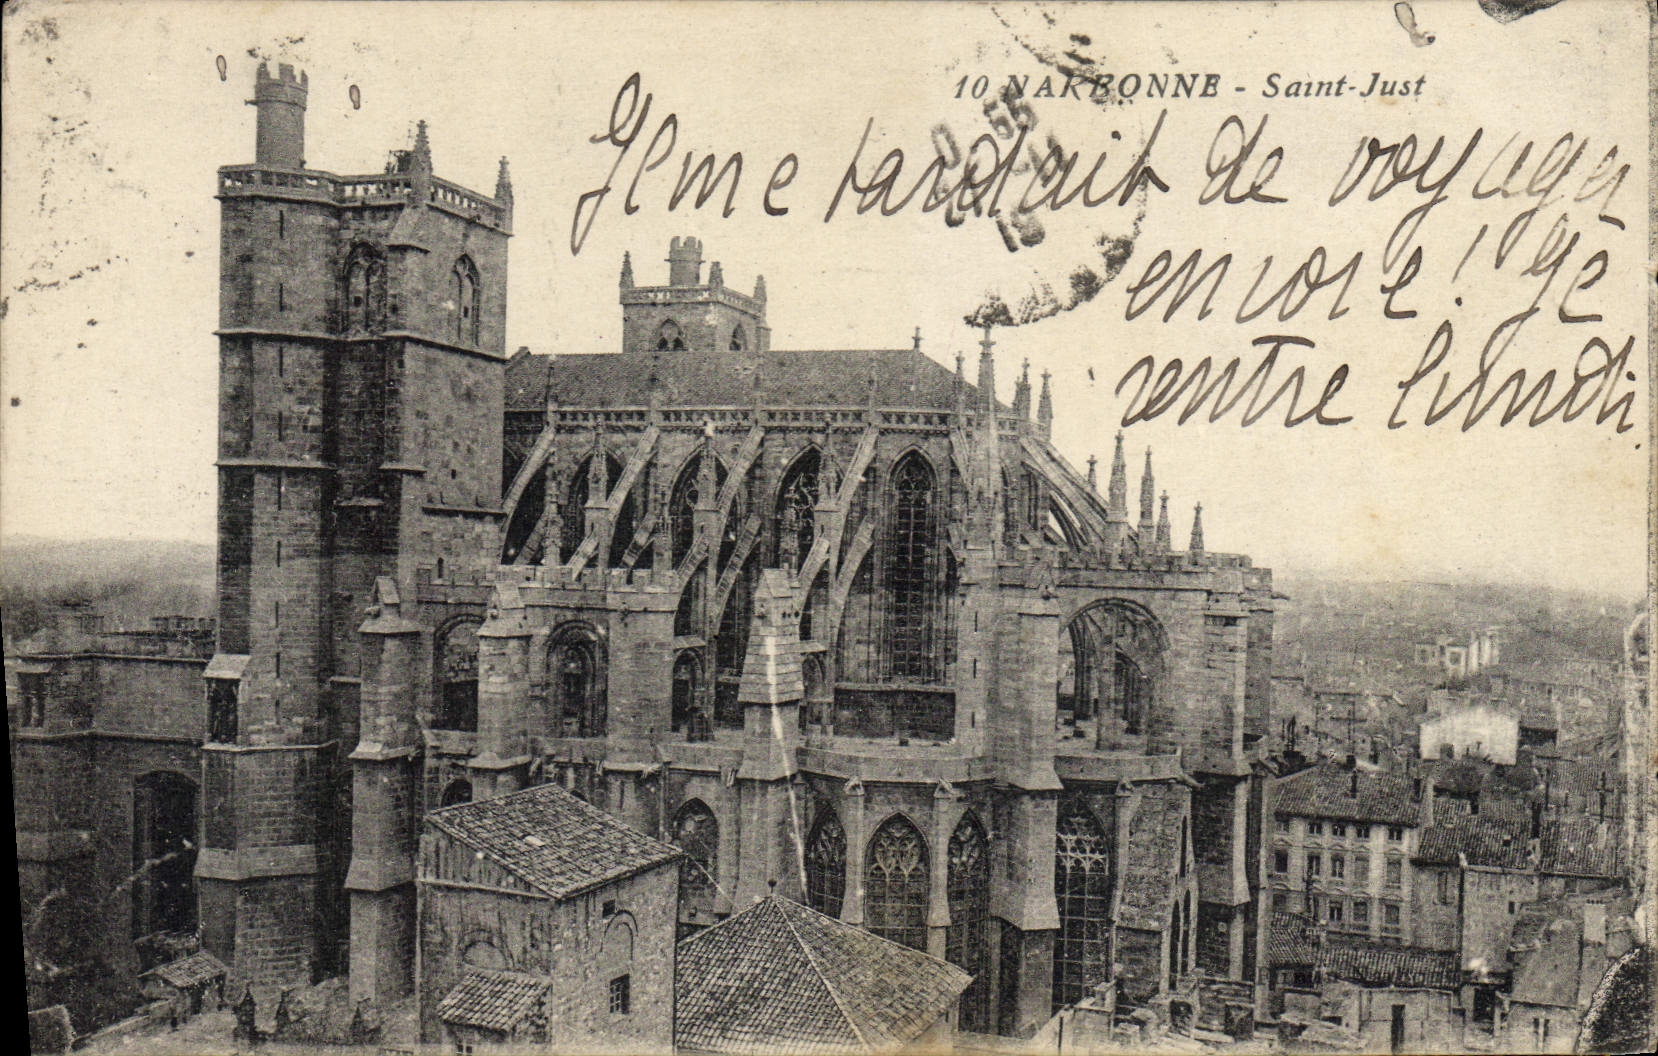 10 NARBONNE - Saint-Just
Il me tardait de voyager
encore ! Je
rentre lundi.